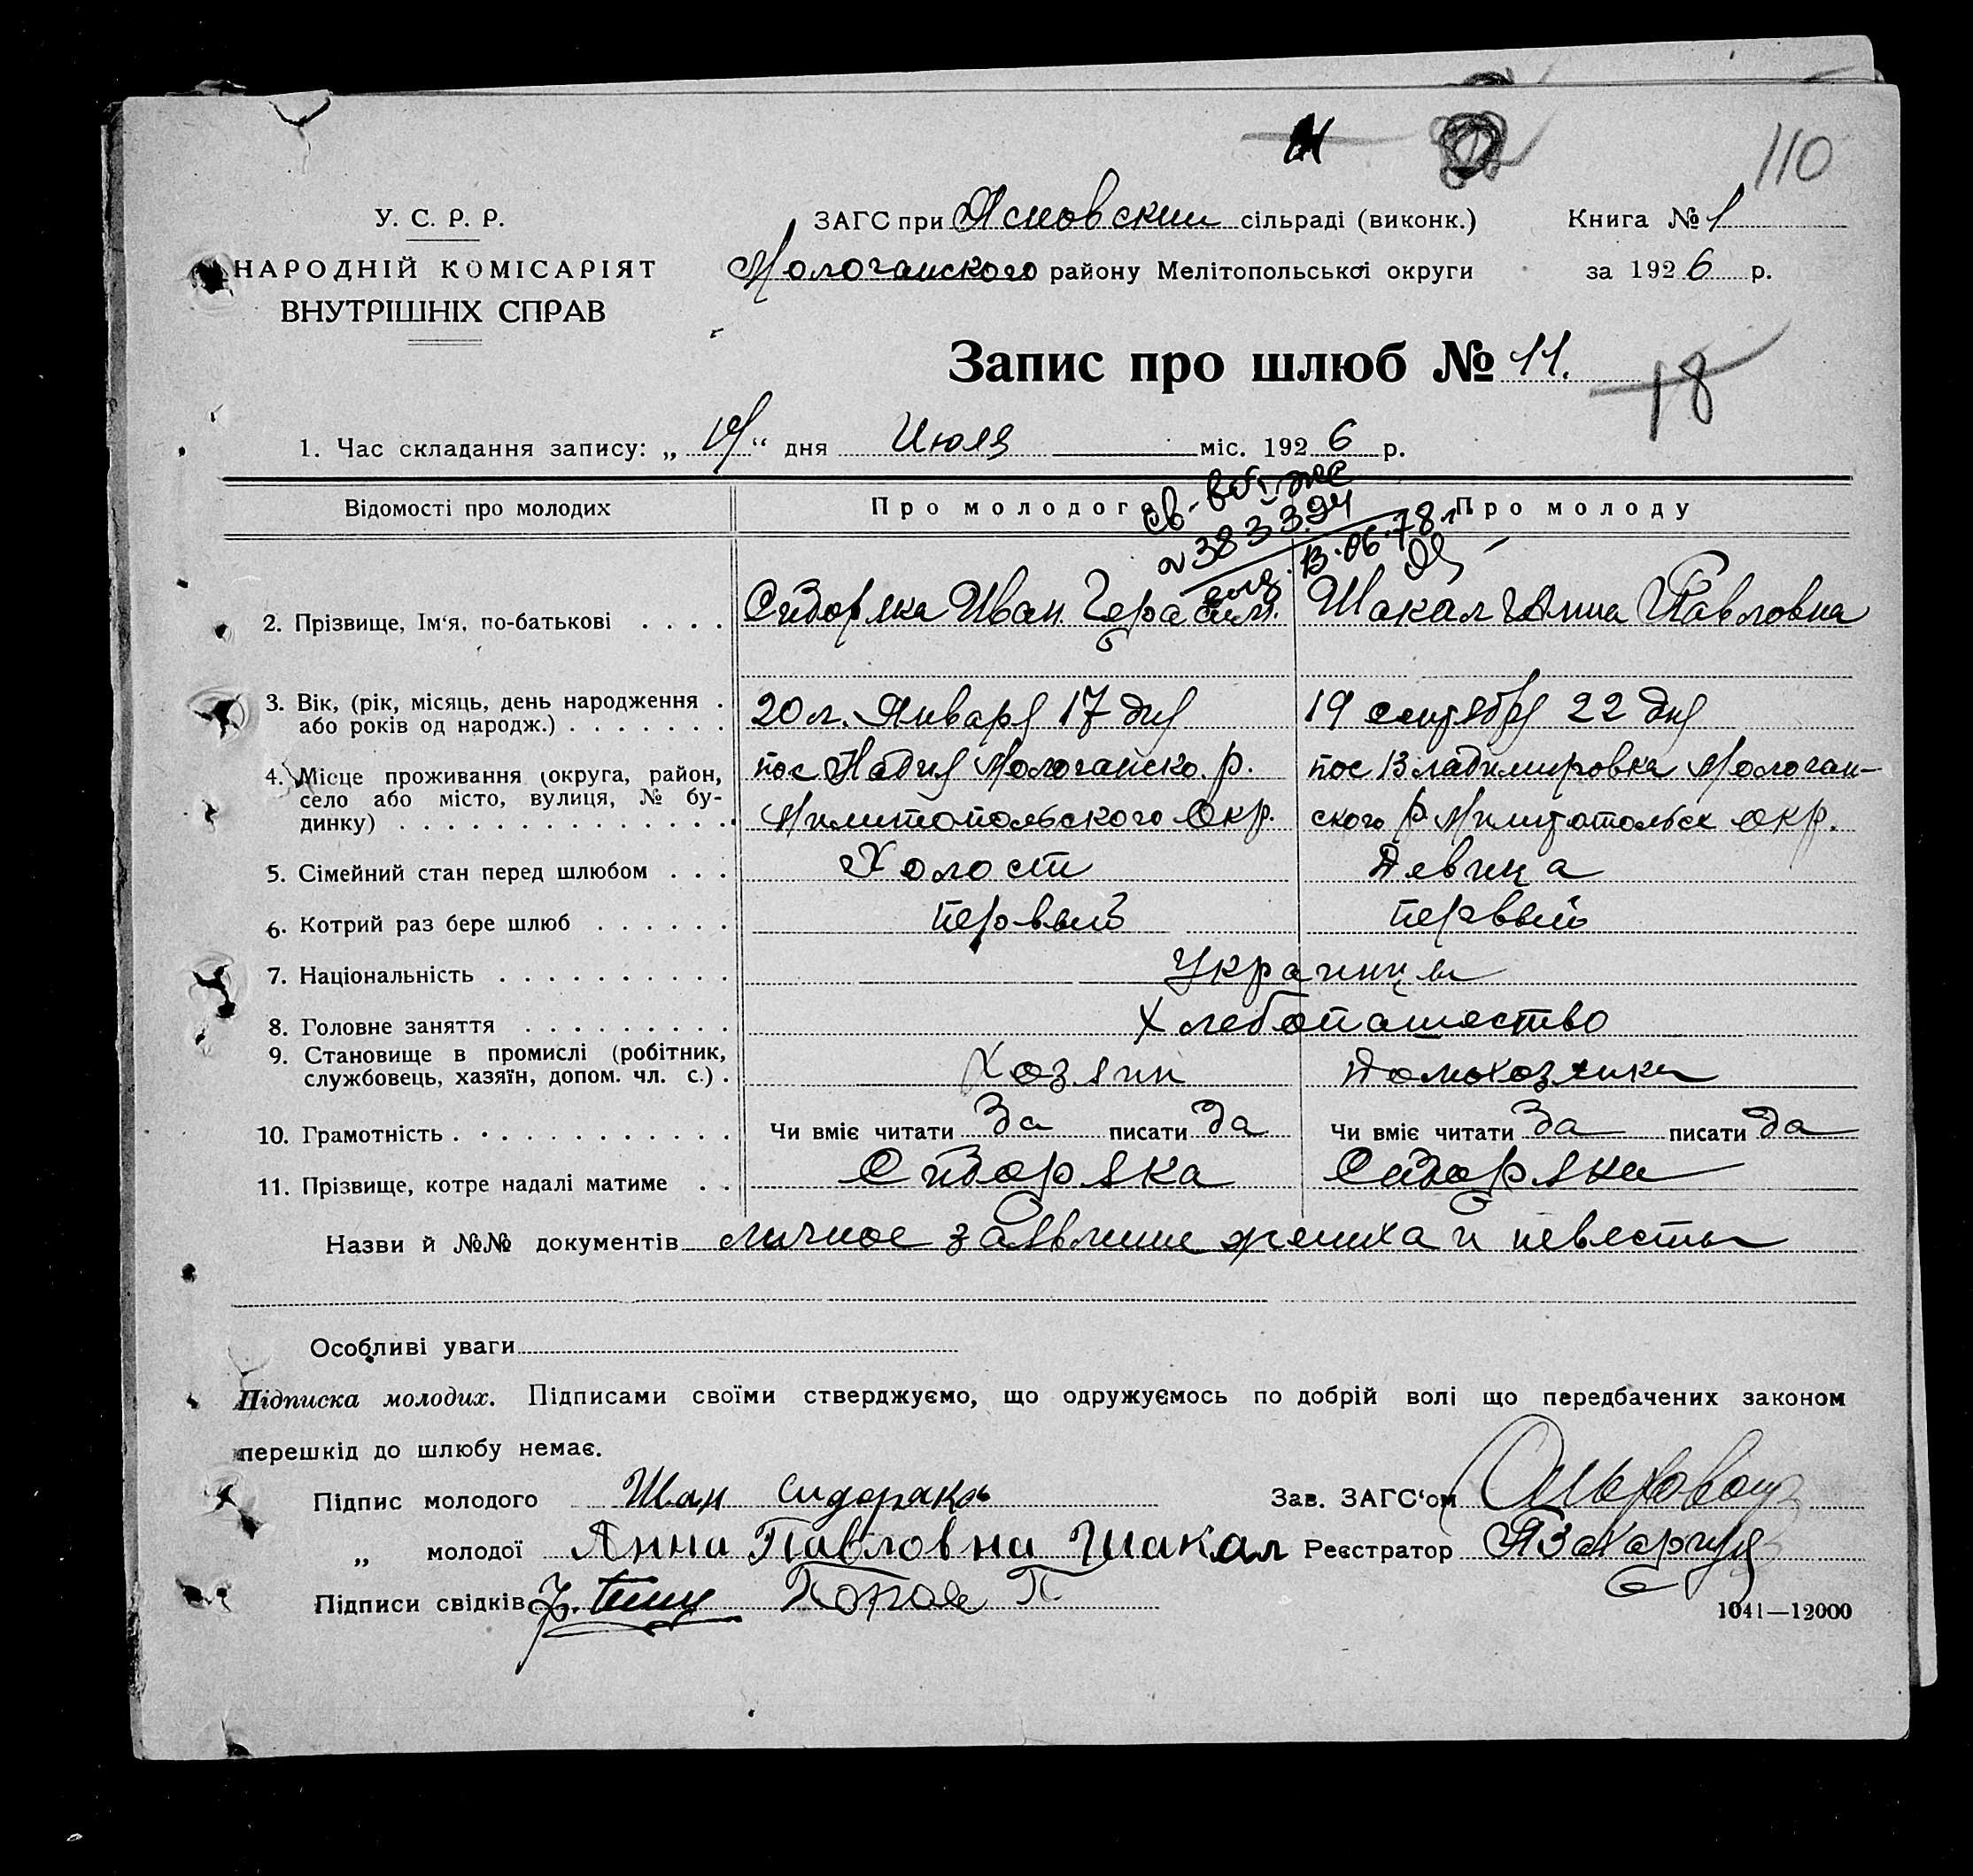 110
У. С. Р. Р.
НАРОДНІЙ КОМІСАРІЯТ
ВНУТРІШНІХ СПРАВ
ЗАГС при Ясновским сільраді (виконк.)
Молочанского району Мелітопольської округи
Книга № 1
за 1926 р.
Запис про шлюб № 11.
18
1. Час складання запису: „ " дня Июля міс. 1926 р.
Відомості про молодих Про молодого Про молоду
383394
13.06.78
2. Прізвище, Ім'я, по-батькові . . . . Сидоряка Иван Герасим. Шакал Анна Павловна
3. Вік, (рік, місяць, день народження . або років од народж.) . . . . . . . 20 л. Января 17 дня 19 сентября 22 дня
4. Місце проживання (округа, район, село або місто, вулиця, № будинку) . . . . . . . . . . . . . . пос Надия Молочанско. р. Милитопольского Окр. пос Владимировка Молочан-ского р. Милитопольск окр.
5. Сімейний стан перед шлюбом . . . Холост Девица
6. Котрий раз бере шлюб . . . . . . первый первый
7. Національність . . . . . . . . . . Украинцы
8. Головне заняття . . . . . . . . . Хлебопашество
9. Становище в промислі (робітник, службовець, хазяїн, допом. чл. с.) . Хозяин Домохозяйка
10. Грамотність . . . . . . . . . . . . Чи вміє читати Да писати Да Чи вміє читати Да писати Да
11. Прізвище, котре надалі матиме . . Сидоряка Сидоряка
Назви й №№ документів личное заявление жениха и невесты
Особливі уваги
Підписка молодих. Підписами своїми стверджуємо, що одружуємось по добрій волі що передбачених законом
перешкід до шлюбу немає.
Підпис молодого Иван Сидорака Зав. ЗАГС'ом
„ молодої Анна Павловна Шакал Реєстратор
Підписи свідків
1041—12000